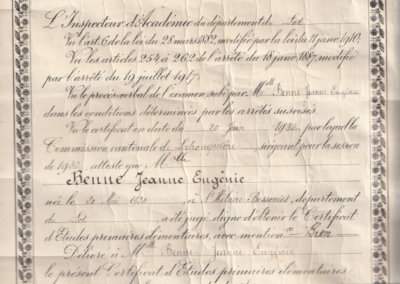 L'Inspecteur d'Académie du département du Lot
Vu l'art. 6 de la loi du 28 mars 1882, modifié par la loi du 11 janv. 1910,
Vu les articles 254 à 262 de l'arrêté du 18 janv. 1887, modifié
par l'arrêté du 19 juillet 1917.
Vu le procès-verbal de l'examen subi par Mlle Benne Jeanne Eugénie
dans les conditions déterminées par les arrêtés susvisés.
Vu le certificat en date du 20 Juin par lequel la
Commission cantonale de siégeant pour la session
de atteste que Mlle
Benne Jeanne Eugénie
née le 20 Mai à département
du Lot a été jugé digne d'obtenir le Certificat
d'Etudes primaires élémentaires, avec mention Bien
Délivre à Mlle Benne Jeanne Eugénie
le présent Certificat d'Etudes primaires élémentaires.